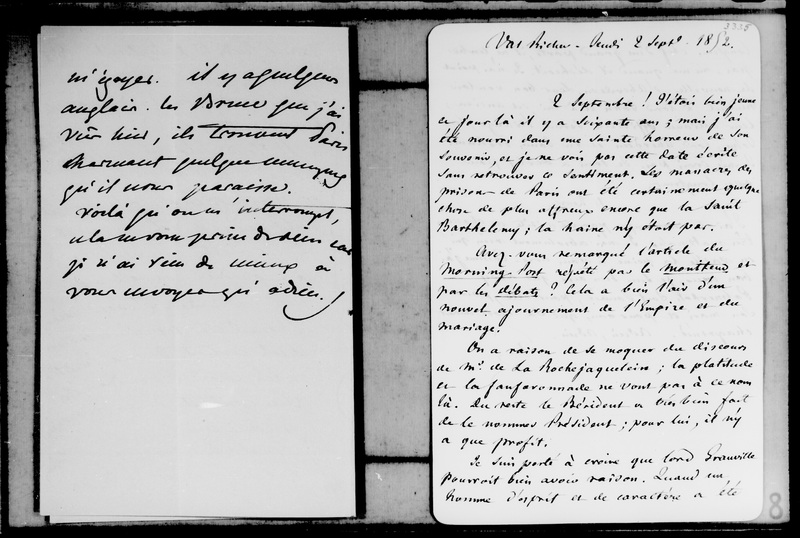 m'égayer. il y a quelques
anglais. les Bruce que j'ai
vus hier, ils trouvent Paris
charmant quelque ennuyeux
qu'il nous paraisse.
voilà qu'on m'interrompt,
je n'ai rien de mieux à
vous envoyer qu'adieu.
3335
Val Richer - Jeudi 2 Septe 1852.
2 Septembre ! J'étais bien jeune
ce jour là il y a soixante ans ; mais j'ai
été nourri dans une sainte horreur de son
souvenir, et je ne vois pas cette date écrite
sans retrouver ce sentiment. Les massacres des
prisons de Paris ont été certainement quelque
chose de plus affreux encore que la Saint
Barthelemy ; la haine n'y était pas.
Avez-vous remarqué l'article du
Morning Post répété par le Moniteur et
par les débats ? Cela a bien l'air d'un
nouvel ajournement de l'Empire et du
mariage.
On a raison de se moquer du discours
de Mr. de La Rochejaquelein ; la platitude
et la fanfaronnade ne vont pas à ce nom
là. Du reste le Président a très bien fait
de le nommer Président ; pour lui, il n'y
a que profit.
Je suis porté à croire que lord Granville
pourroit bien avoir raison. Quand un
homme d'esprit et de caractère a été
8